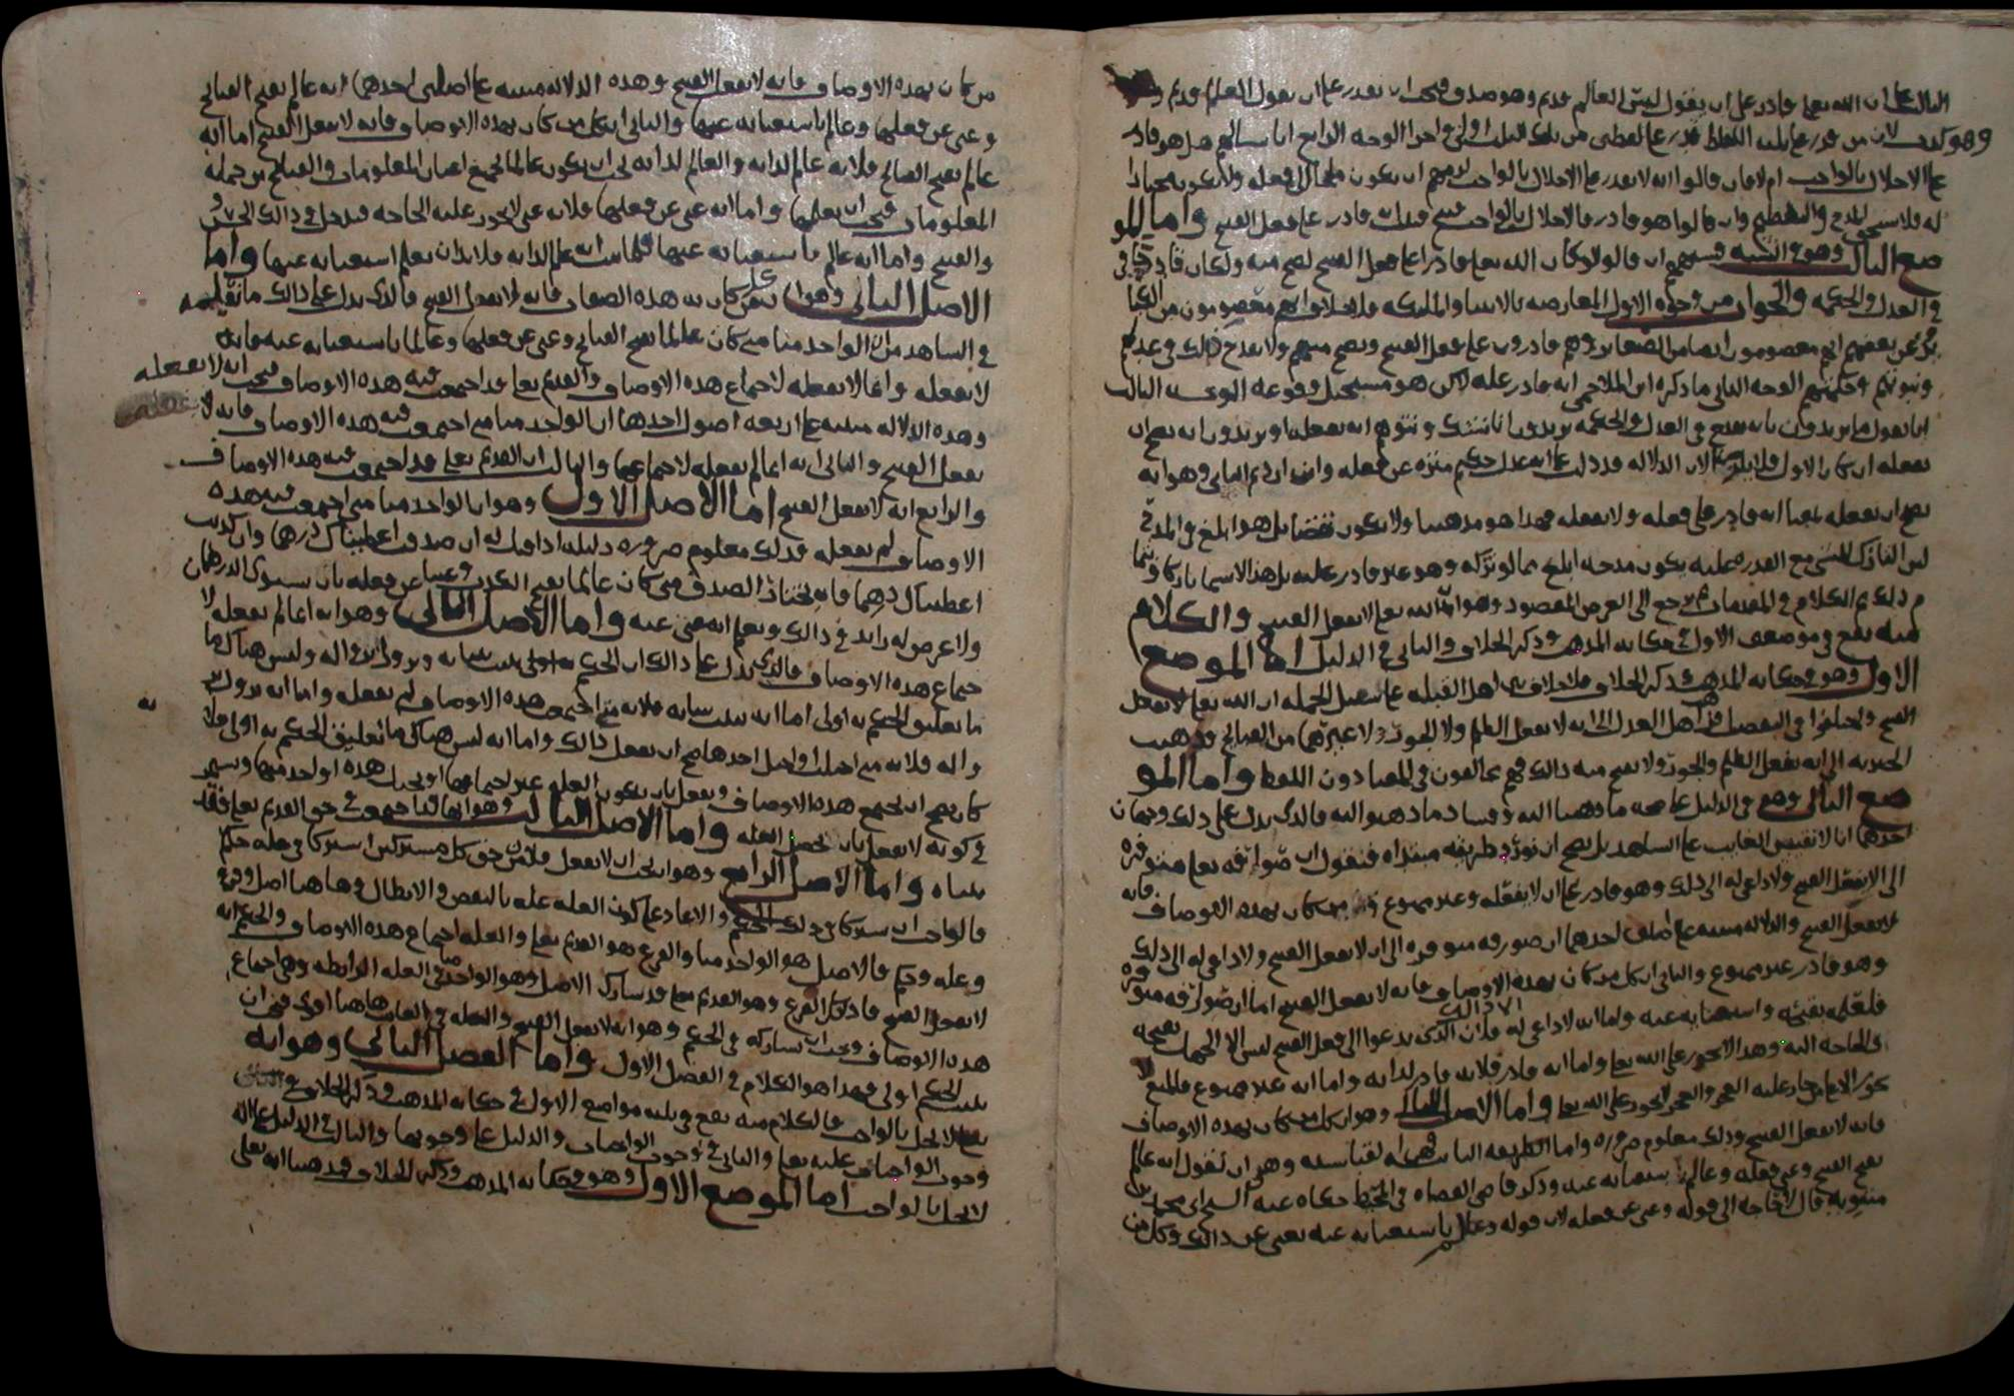 الثالث ان الله تعالى قادر على ان يقول ليس العالم قديم وهو صدق فيجب ان يقدر على ان يقول العالم قديم
وهو كذب لان من قدر على تلك اللفظ قدر على لفظتين من تلك الثلاث اولى واحرا الوجه الرابع انا نسالهم هل هو قادر
على الاخلال بالواجب ام لا فان قالوا انه لا يقدر على الاخلال بالواجب لزمهم ان يكون ملجأ الى فعله ولا يكون مختارا
له فلا يستحق المدح والتعظيم وان قالوا هو قادر فالاخلال بالواجب قبيح فثبت انه قادر على فعل القبيح واما المو
ضع الثالث وهو في الشبه فشبهتهم ان قالوا لو كان الله تعالى قادرا على فعل القبيح لصح منه ولكان قادحا في
في العدل والحكمة والجواب من وجوه الاول المعارضة بالانبيا والملائكة فلا خلاف انهم معصومون من الكبا
ئر وعن بعضهم انهم معصومون ايضا من الصغائر وهم قادرون على فعل القبيح ويصح منهم ولا يقدح ذلك في عدلهم
ونبوتهم وحكمتهم الوجه الثاني ما ذكره ابن الملاحمي انه قادر عليه لاكن هو مستحيل وقوعه الوجه الثالث
انا نقول ما تريدون بانه يقدح في العدل والحكمة تريدون انا نشك ونتوهم انه يفعله او تريدون انه يصح ان
يفعله ان كان الاول فلا يلزم لان الدلالة قد دلت على انه عدل حكيم منزه عن فعله وان اردتم الثاني وهو انه
يصح ان يفعله بمعنا انه قادر على فعله ولا يفعله فهذا هو مذهبنا ولا يكون نقضا بل هو ابلغ في المدح
ليس التارك للشي مع القدرة عليه يكون مدحه ابلغ مما لو تركه وهو غير قادر عليه
م ذلك ثم الكلام في المقدمات ثم نرجع الى الغرض المقصود وهو ان الله تعالى لا يفعل القبيح والكلام
منه يقع في موضعين الاول في حكاية المذهب وذكر الخلاف والثاني في الدليل اما الموضع
الاول وهو في حكاية المذهب وذكر الخلاف فلا خلاف بين اهل القبلة على سبيل الجملة ان الله تعالى لا يفعل
القبيح واختلفوا في التفصيل فذهب اهل العدل الى انه لا يفعل الظلم ولا الجور ولا غيرهما من القبائح وذهب
الجبرية الى انه يفعل الظلم والجور ولا يقبح منه ذلك فهم مخالفون في المعنا دون اللفظ واما المو
ضع الثاني وهو في الدليل على صحة ما ذهبنا اليه وفساد ما ذهبوا اليه فالذي يدل على ذلك وجهان
احدهما انا لا نقيس الغايب على الشاهد بل يصح ان نورد طريقة مبتداه فنقول ان صوارفه تعالى متوفرة
الى الا يفعل القبيح ولا داعي له الى ذلك وهو قادر على ان لا يفعله وغير ممنوع من كان بهذه الاوصاف فانه
لا يفعل القبيح والدلالة مبنية على اصلين احدهما ان صورفه متوفره الى ان لا يفعل القبيح ولا داعي له الى ذلك
وهو قادر غير ممنوع والثاني ان كل من كان بهذه الاوصاف فانه لا يفعل القبيح اما ان صوارفه متوفرة
فلعلمه بقبحه واستغنايه عنه واما انه لا داعي له الى ذلك فلان الذي يدعوا الى فعل القبيح ليس الا الجهل بقبحه
والحاجة اليه وهذا لا يجوز على الله تعالى واما انه قادر فلانه قادر لذاته واما انه غير ممنوع فالمنع لا
يجوز الا على من جاز عليه العجز والعجز لا يجوز على الله تعالى واما الاصل الثاني وهو ان كل من كان بهذه الاوصاف
فانه لا يفعل القبيح وذلك معلوم ضرورة واما الطريقة الثانية فهي القياسية وهي ان نقول انه عالم
بقبح القبيح وغني عن فعله وعالم باستغنايه عنه وذكر قاضي القضاة في المحيط حكاه عنه الشيخ ابن
متويه قال لا حاجة الى قوله وغني عن فعله لان قوله وعالم باستغنايه عنه يغني عن ذلك وكل من
من كان بهذه الاوصاف فانه لا يفعل القبيح وهذه الدلالة مبنية على اصلين احدهما انه عالم بقبح القبائح
وغني عن فعلها وعالم باستغنايه عنها والثاني ان كل من كان بهذه الاوصاف فانه لا يفعل القبيح اما انه
عالم بقبح القبائح فلانه عالم لذاته والعالم لذاته يجب ان يكون عالما بجميع اعيان المعلومات والقبائح من جملة
المعلومات فيجب ان يعلمها واما انه غني عن فعلها فلانه غني لا يجوز عليه الحاجة فدخل في ذلك الحسن
والقبيح واما انه عالم باستغنايه عنها فلما ثبت انه عالم لذاته فلا بد ان يعلم استغنايه عنها واما
الاصل الثاني وهو ان كل من كان به هذه الصفات فانه لا يفعل القبيح فالذي يدل على ذلك ما نعلمه
في الشاهد من ان الواحد منا متى كان عالما بقبح القبائح وغني عن فعلها وعالما باستغنايه عنه فانه
لا يفعله وانما لا يفعله لاجماع هذه الاوصاف والقديم تعالى قد اجتمعت فيه هذه الاوصاف فيجب انه لا يفعله
وهذه الدلالة مبنية على اربعة اصول احدها ان الواحد منا متى اجتمعت فيه هذه الاوصاف فانه لا
يفعل القبيح والثاني انه انما لم يفعله لاجتماعها والثالث ان القديم تعالى قد اجتمعت فيه هذه الاوصاف
والرابع انه لا يفعل القبيح اما الاصل الاول وهو ان الواحد منا متى اجتمعت فيه هذه
الاوصاف لم يفعله فذلك معلوم ضرورة دليله اذا قيل له ان صدقت اعطيناك درهما وان كذبت
اعطيناك درهما فانه يختار الصدق متى كان عالما بقبح الكذب وغنيا عن فعله بان يستوي الدرهمان
ولا غرض له زايد في ذلك ويعلم انه غني عنه واما الاصل الثاني وهو انه انما لم يفعله لا
جتماع هذه الاوصاف فالذي يدل على ذلك ان الحكم يثبت بثباته ويزول بزواله وليس هناك ما
ما تعليق الحكم به اولى اما انه يثبت بثباته فلانه متى اجتمعت هذه الاوصاف لم يفعله واما انه يزول بز
واله فلانه متى اختلت او اختل احدها صح ان يفعل ذلك واما انه ليس هناك ما تعليق الحكم به اولى فلا
في كونه لا يفعل بان تحصل العلة واما الاصل الثالث وهو انها قد اجتمعت في حق القديم تعالى فقد
بيناه واما الاصل الرابع وهو انه يجب ان لا يفعل فلان من حق كل مشتركين اشتركا في علة حكم
فالواجب ان يشتركا في ذلك الحكم والا عاد على كون العلة علة بالنقض والابطال وها هنا اصل وفرع
وعلة وحكم فالاصل هو الواحد منا والفرع هو القديم تعالى والعلة اجتماع هذه الاوصاف والحكم انه
لا يفعل القبيح فاذا كان الفرع وهو القديم تعالى قد شارك الاصل وهو الواحد منا في العلة الرابطة وهي اجتماع
هذه الاوصاف وجب ان يشاركه في الحكم وهو انه لا يفعل القبيح والعلة في الغايب هاهنا اقوى فيجب ان
يثبت الحكم اولى فهذا هو الكلام في الفصل الاول واما الفصل الثاني وهو انه
تعالى لا يخل بالواجب فالكلام منه يقع في ثلاثة مواضع الاول في حكاية المذهب وذكر الخلاف في
وجوب الواجبات عليه تعالى والثاني في وجوب الواجبات والدليل على وجوبها والثالث في الدليل على انه
لا يخل بالواجب اما الموضع الاول وهو في حكاية المذهب وذكر الخلاف فذهبنا انه تعالى